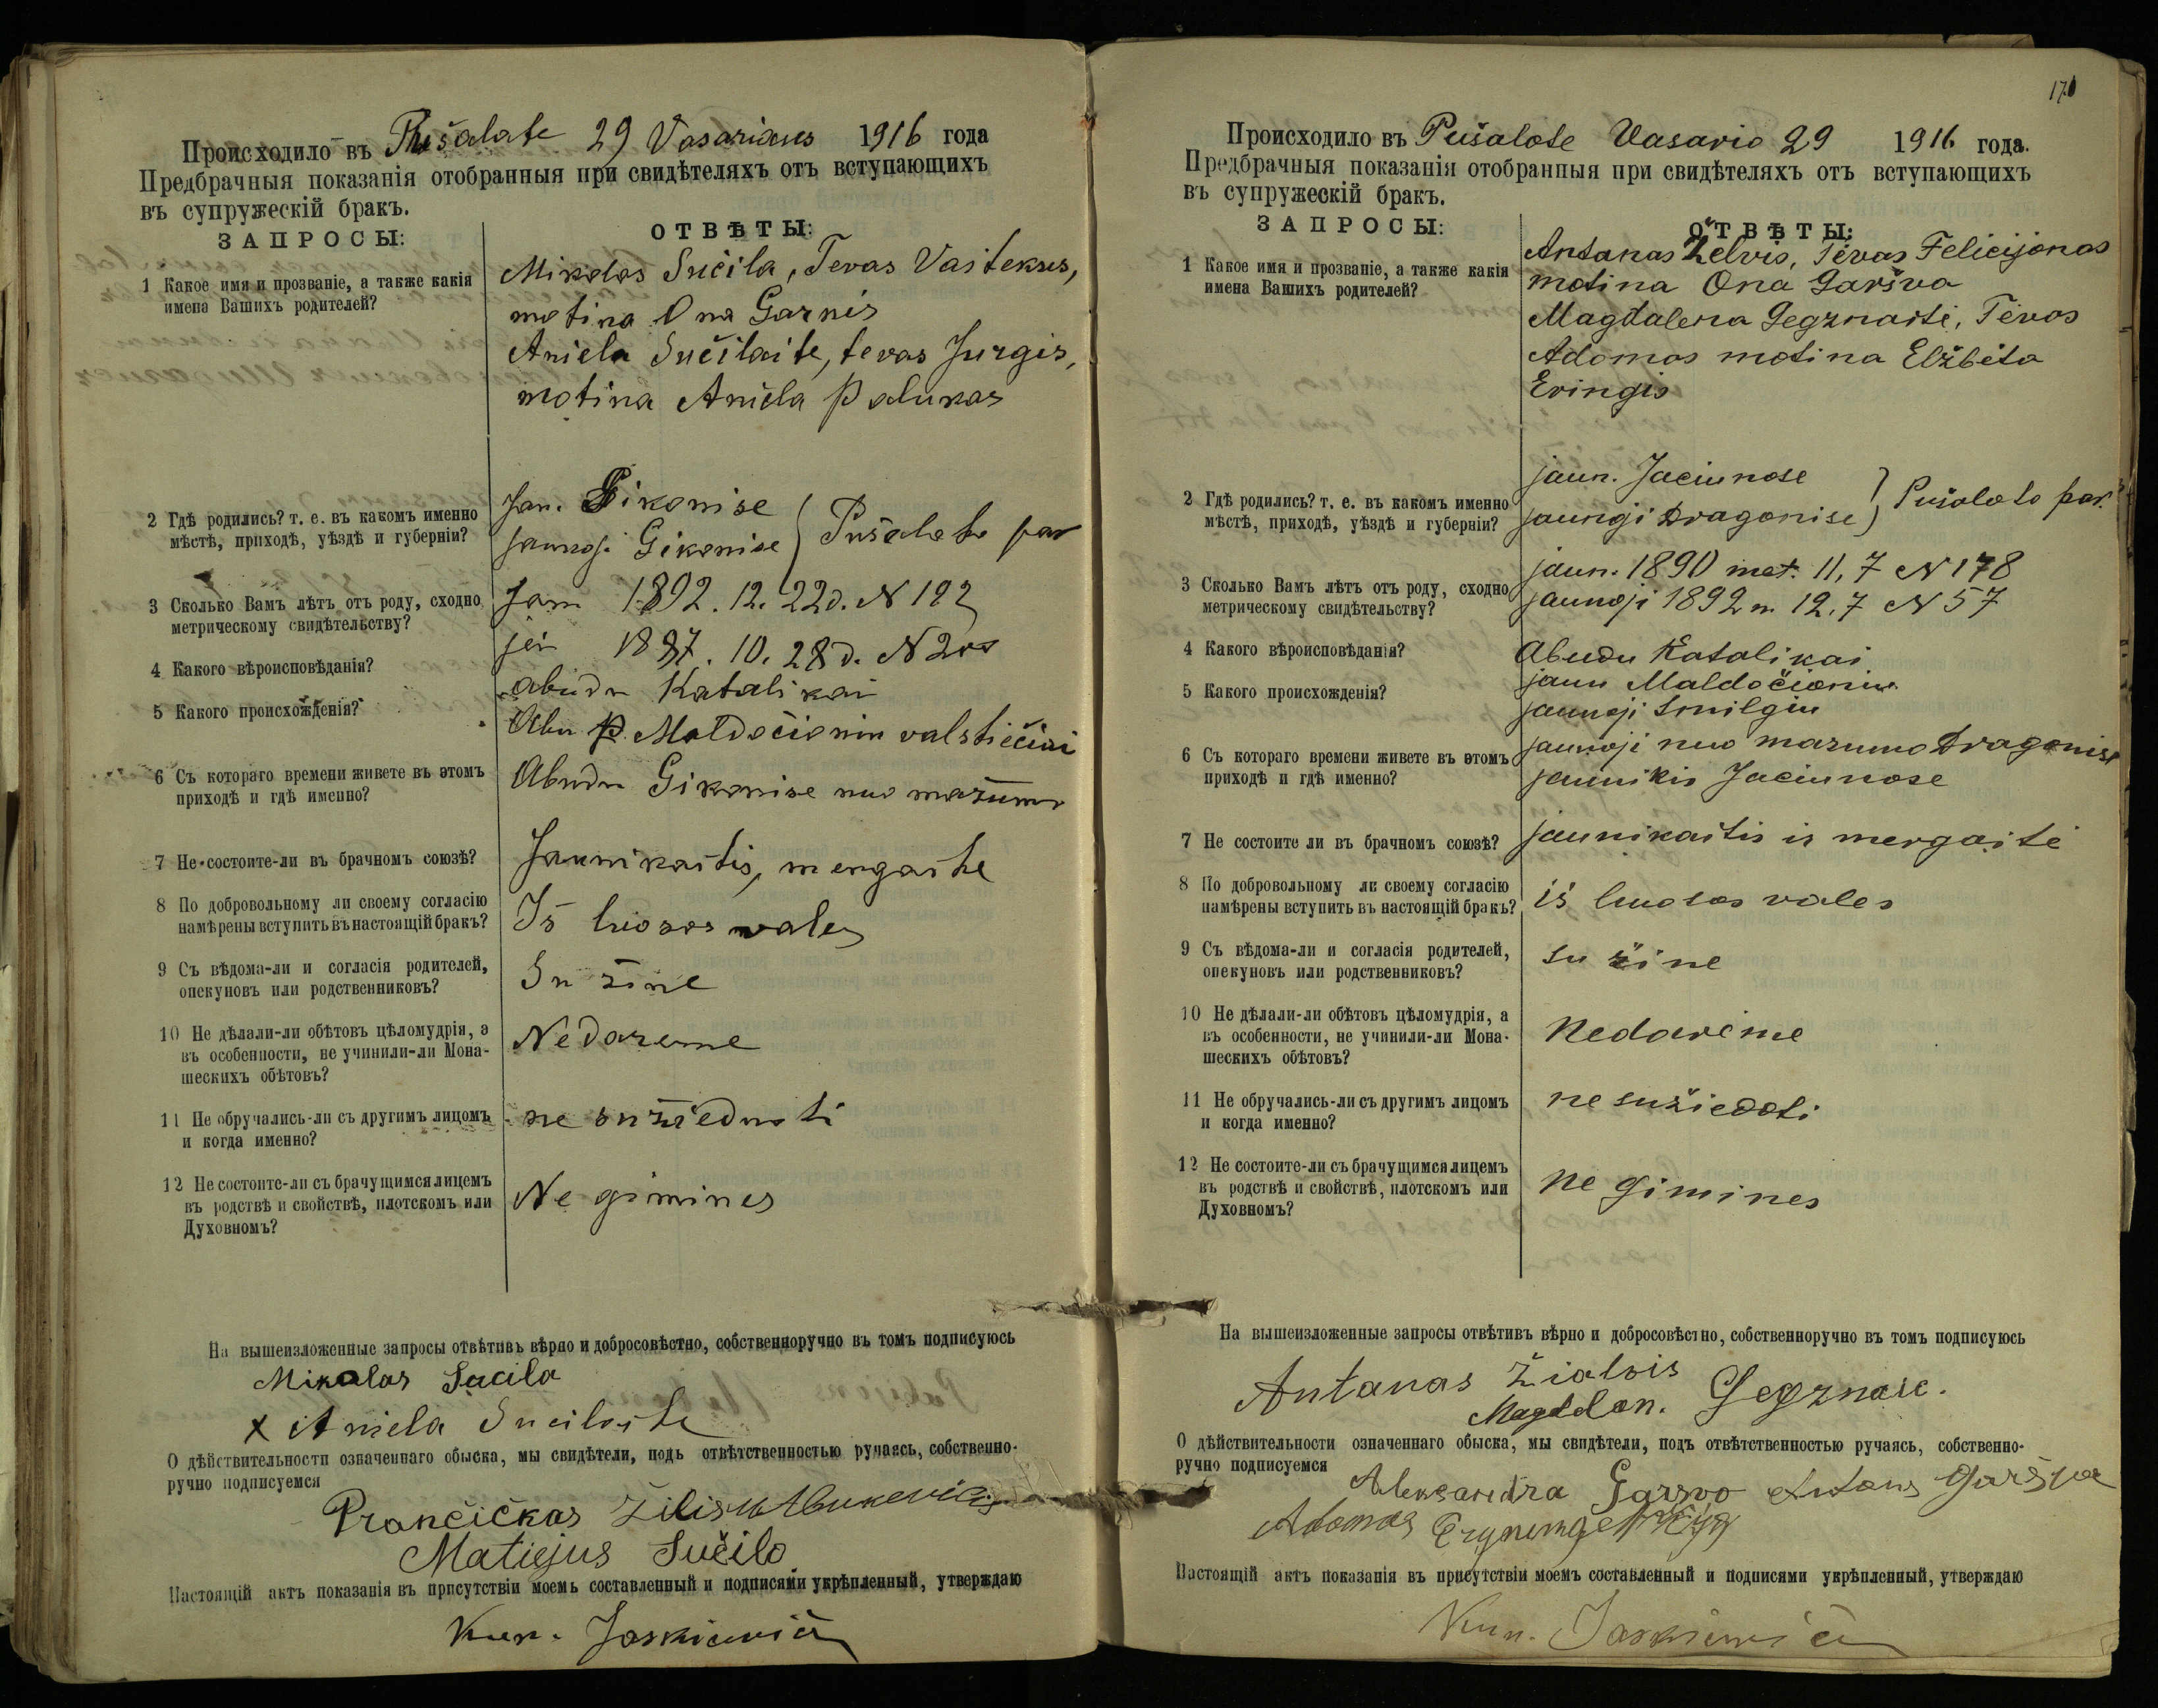 Происходило въ Pušalate 29 Vasariaus 1916 года
Предбрачныя показанія отобранныя при свидѣтеляхъ отъ вступающихъ
въ супружескій бракъ.
ЗАПРОСЫ:
ОТВѢТЫ:
1 Какое имя и прозваніе, а также какія
имена Вашихъ родителей?
Mikolas Sučila, Tevas Vaitekus,
motina Ona Garnis
Aniela Sučilaite, tevas Jurgis,
motina Aniela Palukas
2 Гдѣ родились? т. е. въ какомъ именно
мѣстѣ, приходѣ, уѣздѣ и губерніи?
Jau. Gikonise
jaunoji Gikonise } Pušalato par
3 Сколько Вамъ лѣтъ отъ роду, сходно
метрическому свидѣтельству?
Jaun 1892. 12. 22d. N 192
jei 1897. 10. 28d. N 200
4 Какого вѣроисповѣданія?
abudu Katalikai
5 Какого происхожденія?
Abu p. Moldočioniu valstiečiai
6 Съ котораго времени живете въ этомъ
приходѣ и гдѣ именно?
Abudu Gikonise nuo mažumo
7 Не состоите-ли въ брачномъ союзѣ?
Jaunikaitis, mergaite
8 По добровольному ли своему согласію
намѣрены вступить въ настоящій бракъ?
Iš luosos vales
9 Съ вѣдома-ли и согласія родителей,
опекуновъ или родственниковъ?
Su žine
10 Не дѣлали-ли обѣтовъ цѣломудрія, а
въ особенности, не учинили-ли Мона-
шескихъ обѣтовъ?
Nedareme
11 Не обручались-ли съ другимъ лицомъ
и когда именно?
ne sužieduoti
12 Не состоите-ли съ брачущимся лицемъ
въ родствѣ и свойствѣ, плотскомъ или
Духовномъ?
Ne gimines
На вышеизложенные запросы отвѣтивъ вѣрно и добросовѣстно, собственноручно въ томъ подписуюсь
Mikolas Sucila
x Aniela Sucilaite
О дѣйствительности означеннаго обыска, мы свидѣтели, подъ отвѣтственностью ручаясь, собственно-
ручно подписуемся
Prančičkas Žilis
Matiejus Sučilo
Настоящій актъ показанія въ присутствіи моемъ составленный и подписями укрѣпленный, утверждаю
Kun. Jaskiewič
170
Происходило въ Pušalote Vasario 29 1916 года.
Предбрачныя показанія отобранныя при свидѣтеляхъ отъ вступающихъ
въ супружескій бракъ.
ЗАПРОСЫ:
ОТВѢТЫ:
1 Какое имя и прозваніе, а также какія
имена Вашихъ родителей?
Antanas Želvis, Tėvas Felicijonas
motina Ona Garšva
Magdalena Gegznaitė, Tėvas
Adomas motina Elžbėta
Eringis
2 Гдѣ родились? т. е. въ какомъ именно
мѣстѣ, приходѣ, уѣздѣ и губерніи?
jaun. Jaciunose
jaunoji Dragonise } Pušaloto par.
3 Сколько Вамъ лѣтъ отъ роду, сходно
метрическому свидѣтельству?
jaun. 1890 met. 11, 7 N 178
jaunoji 1892 m. 12, 7 N 57
4 Какого вѣроисповѣданія?
Abudu Katalikai
5 Какого происхожденія?
jaun Maldočioniu
jaunoji Smilgiu
6 Съ котораго времени живете въ этомъ
приходѣ и гдѣ именно?
jaunoji nuo mazumo Dragonise
jaunikis Jaciunose
7 Не состоите ли въ брачномъ союзѣ?
jaunikaitis ir mergaitė
8 По добровольному ли своему согласію
намѣрены вступить въ настоящій бракъ?
iš luosos vales
9 Съ вѣдома-ли и согласія родителей,
опекуновъ или родственниковъ?
su žine
10 Не дѣлали-ли обѣтовъ цѣломудрія, а
въ особенности, не учинили-ли Мона-
шескихъ обѣтовъ?
Nedarėme
11 Не обручались-ли съ другимъ лицомъ
и когда именно?
ne sužiedoti
12 Не состоите-ли съ брачущимся лицемъ
въ родствѣ и свойствѣ, плотскомъ или
Духовномъ?
ne gimines
На вышеизложенные запросы отвѣтивъ вѣрно и добросовѣстно, собственноручно въ томъ подписуюсь
Antanas Žialvis
Magdalen. Gegznaic.
О дѣйствительности означеннаго обыска, мы свидѣтели, подъ отвѣтственностью ручаясь, собственно-
ручно подписуемся
Aleksandra Garsvo Antans Garšva
Adomas
Настоящій актъ показанія въ присутствіи моемъ составленный и подписями укрѣпленный, утверждаю
Kun. Jaskiewič